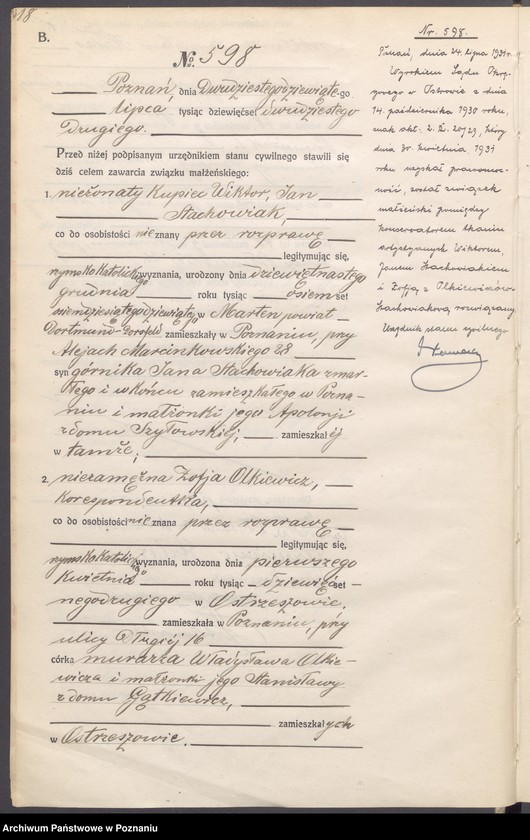 318
B.
№ 598
Poznań, dnia Dwudziestegodziewiąte-go
lipca tysiąc dziewięćset dwudziestego
drugiego.
Przed niżej podpisanym urzędnikiem stanu cywilnego stawili się
dziś celem zawarcia związku małżeńskiego:
1. nieżonaty Kupiec Wiktor, Jan
Stachowiak,
co do osobistości nie znany przez rozprawę
legitymując się,
rzymsko katolickiego wyznania, urodzony dnia dziewiętnastego
grudnia roku tysiąc ośiemset
osiemdziesiątegodziewiątego w Marten powiat
Dortmund-Dorsfeld zamieszkały w Poznaniu, przy
Alejach Marcinkowskiego 28
syn górnika Jana Stachowiaka zmar-
łego i w końcu zamieszkałego w Pozna-
niu i małżonki jego Apolonji
z domu Szyłowskiej, zamieszkałej
w tamże;
2. niezamężna Zofja Olkiewicz,
Korespondentka,
co do osobistości nie znana przez rozprawę
legitymując się,
rzymsko katolickiego wyznania, urodzona dnia pierwszego
Kwietnia roku tysiąc dziewięćset
negodrugiego w Ostrzeszowie,
zamieszkała w Poznaniu, przy
ulicy Długiej 16
córka murarza Władysława Olkie-
wicza i małżonki jego Stanisławy
z domu Gątkiewicz,
zamieszkałych
w Ostrzeszowie.
Nr. 598.
Poznań, dnia 24. lipca 1931 r.
Wyrokiem Sądu Okrę-
gowego w Ostrowie z dnia
14. października 1930 roku,
znak akt. 2. Z. 20/29, który
dnia 30. kwietnia 1931
roku uzyskał prawomoc-
ność, został związek
małżeński pomiędzy
konserwatorem tkanin
artystycznych Wiktorem,
Janem Stachowiakiem
i Zofją z Olkiewiczów
Stachowiakową rozwiązany.
Urzędnik stanu cywilnego
Archiwum Państwowe w Poznaniu